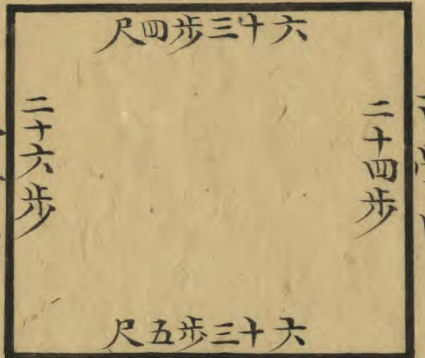 六十三步四尺
二十四步
二十六步
六十三步五尺